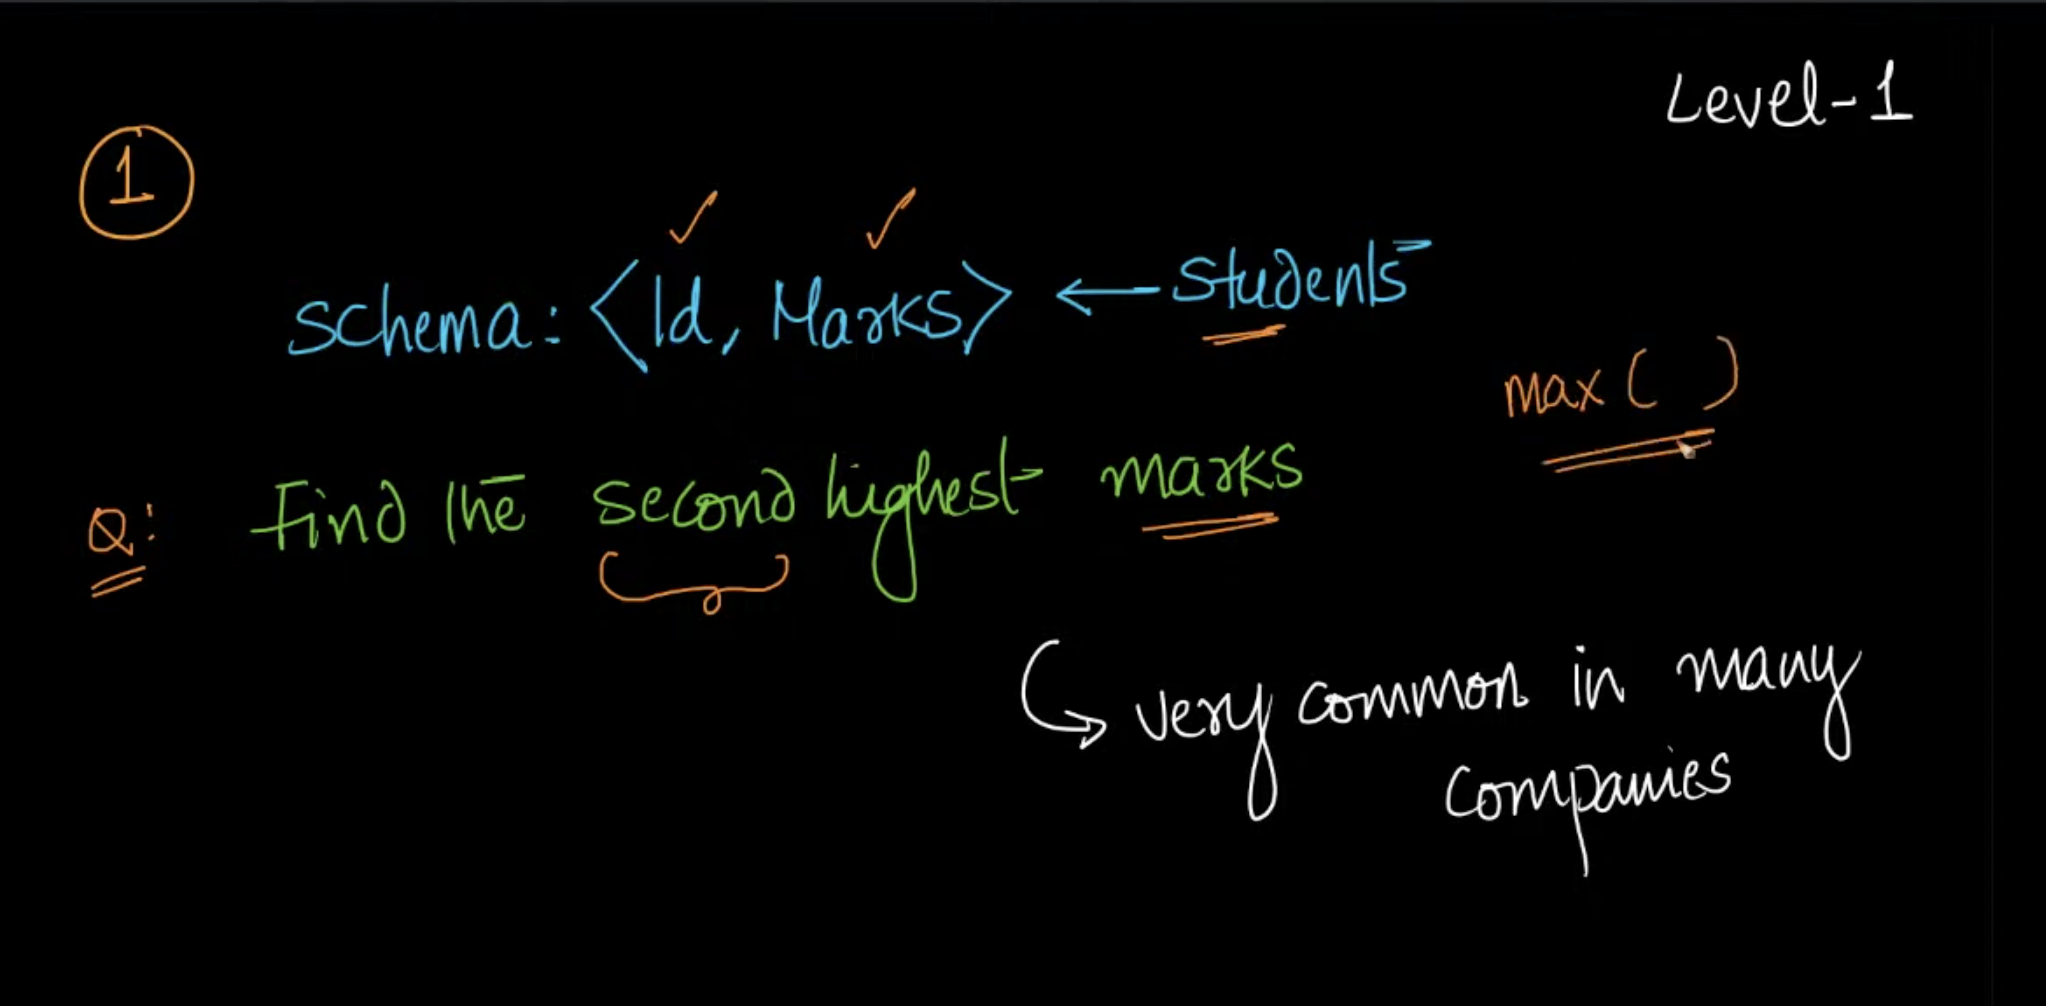 Level-1
1
Schema: <Id, Marks> ← Students
max( )
Q: Find the second highest marks
very common in many
companies